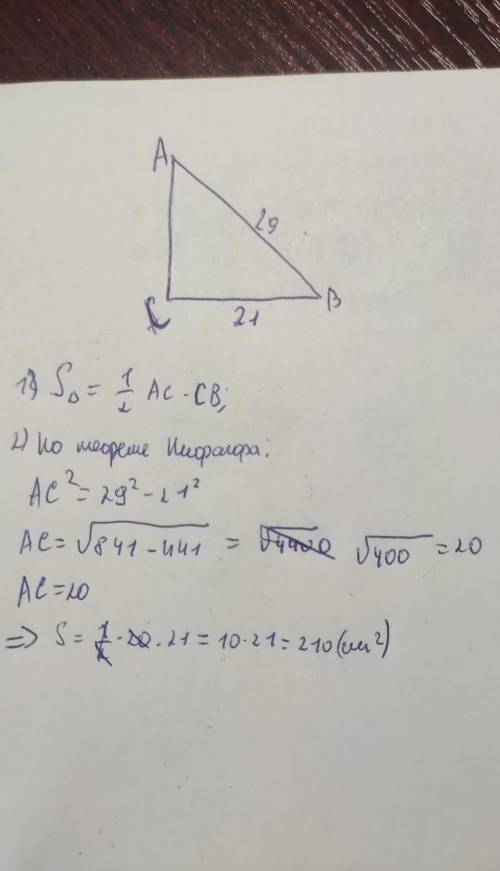 A
29
C
B
21
1) S△ = 1/2 AC · CB;
2) По теореме Пифагора:
AC² = 29² - 21²
AC = √841 - 441 = √4400 √400 = 20
AC = 20
=> S = 1/2 · 20 · 21 = 10 · 21 = 210 (см²)